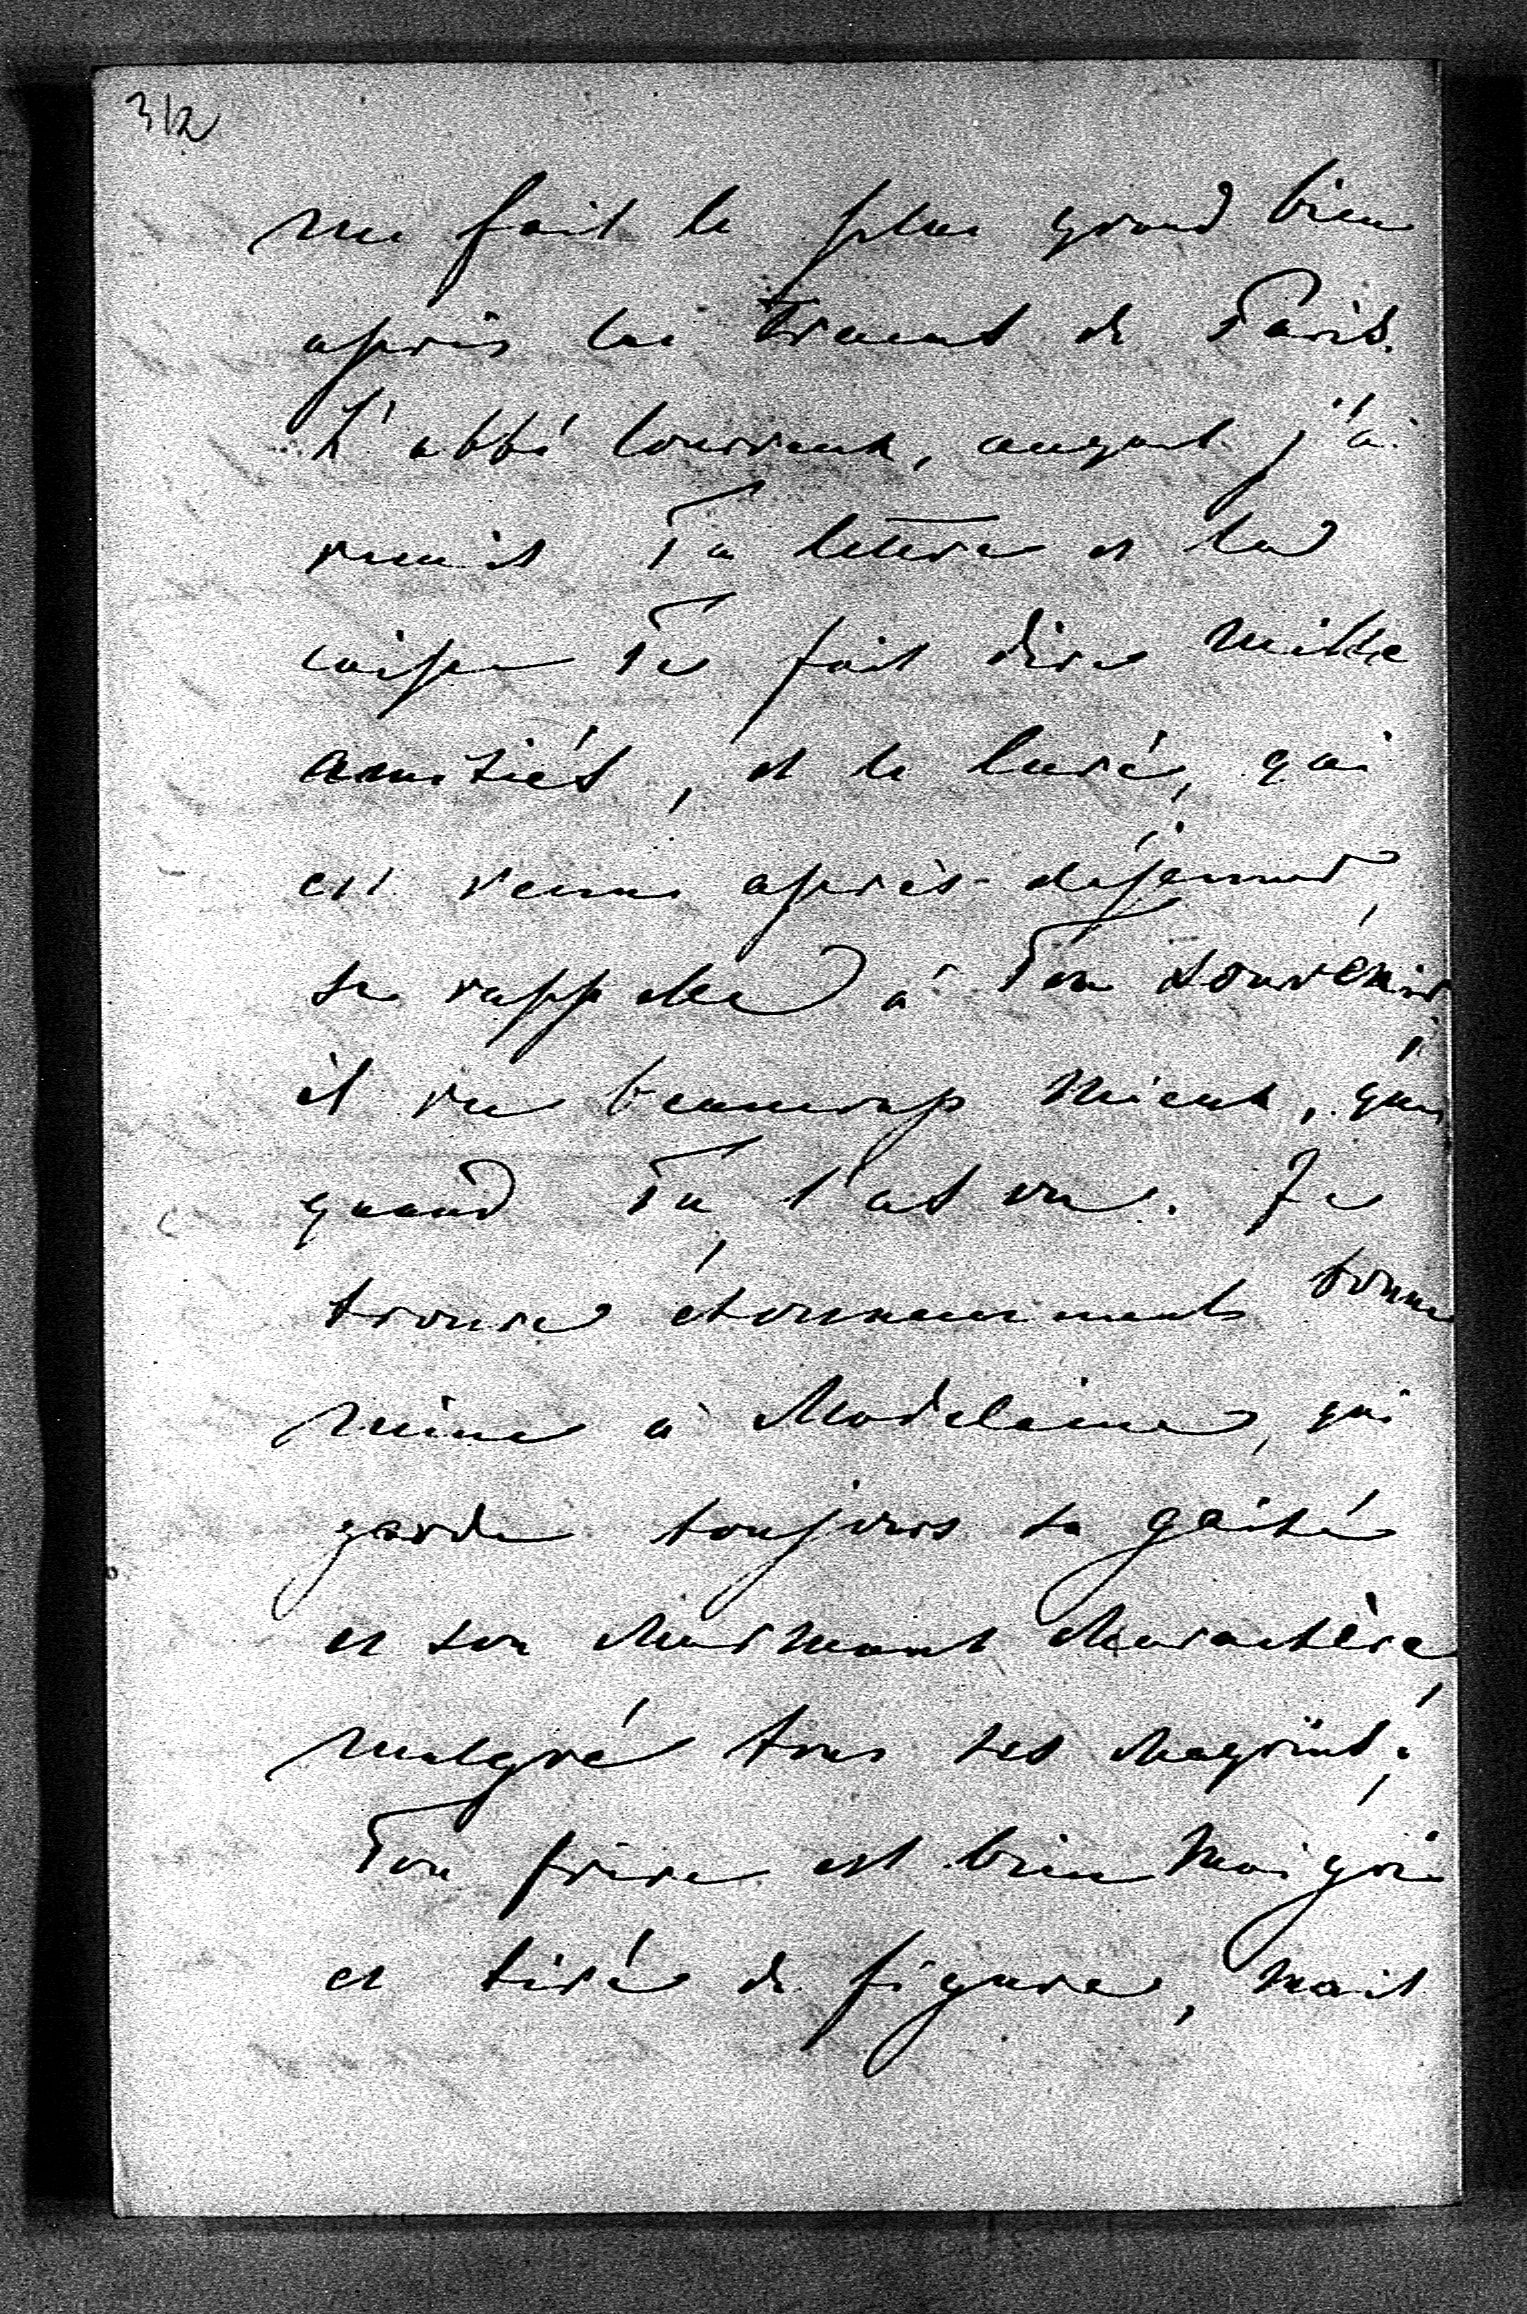 312
me fait le plus grand bien
après les tracas de Paris.
L'abbé Courraux, auquel j'ai
remis Ta lettre et la
caisse Te fait dire mille
amitiés, et le Curé, qui
est venu après-déjeuner,
se rappelle à Ton souvenir;
il va beaucoup mieux, que
quand Tu l'as vu. Je
trouve étonnemment bonne
mine à Madeleine, qui
garde toujours sa gaité
et son charmant charactère,
malgré tous ses chagrins;
Ton frère est bien maigri
et tiré de figure, mais